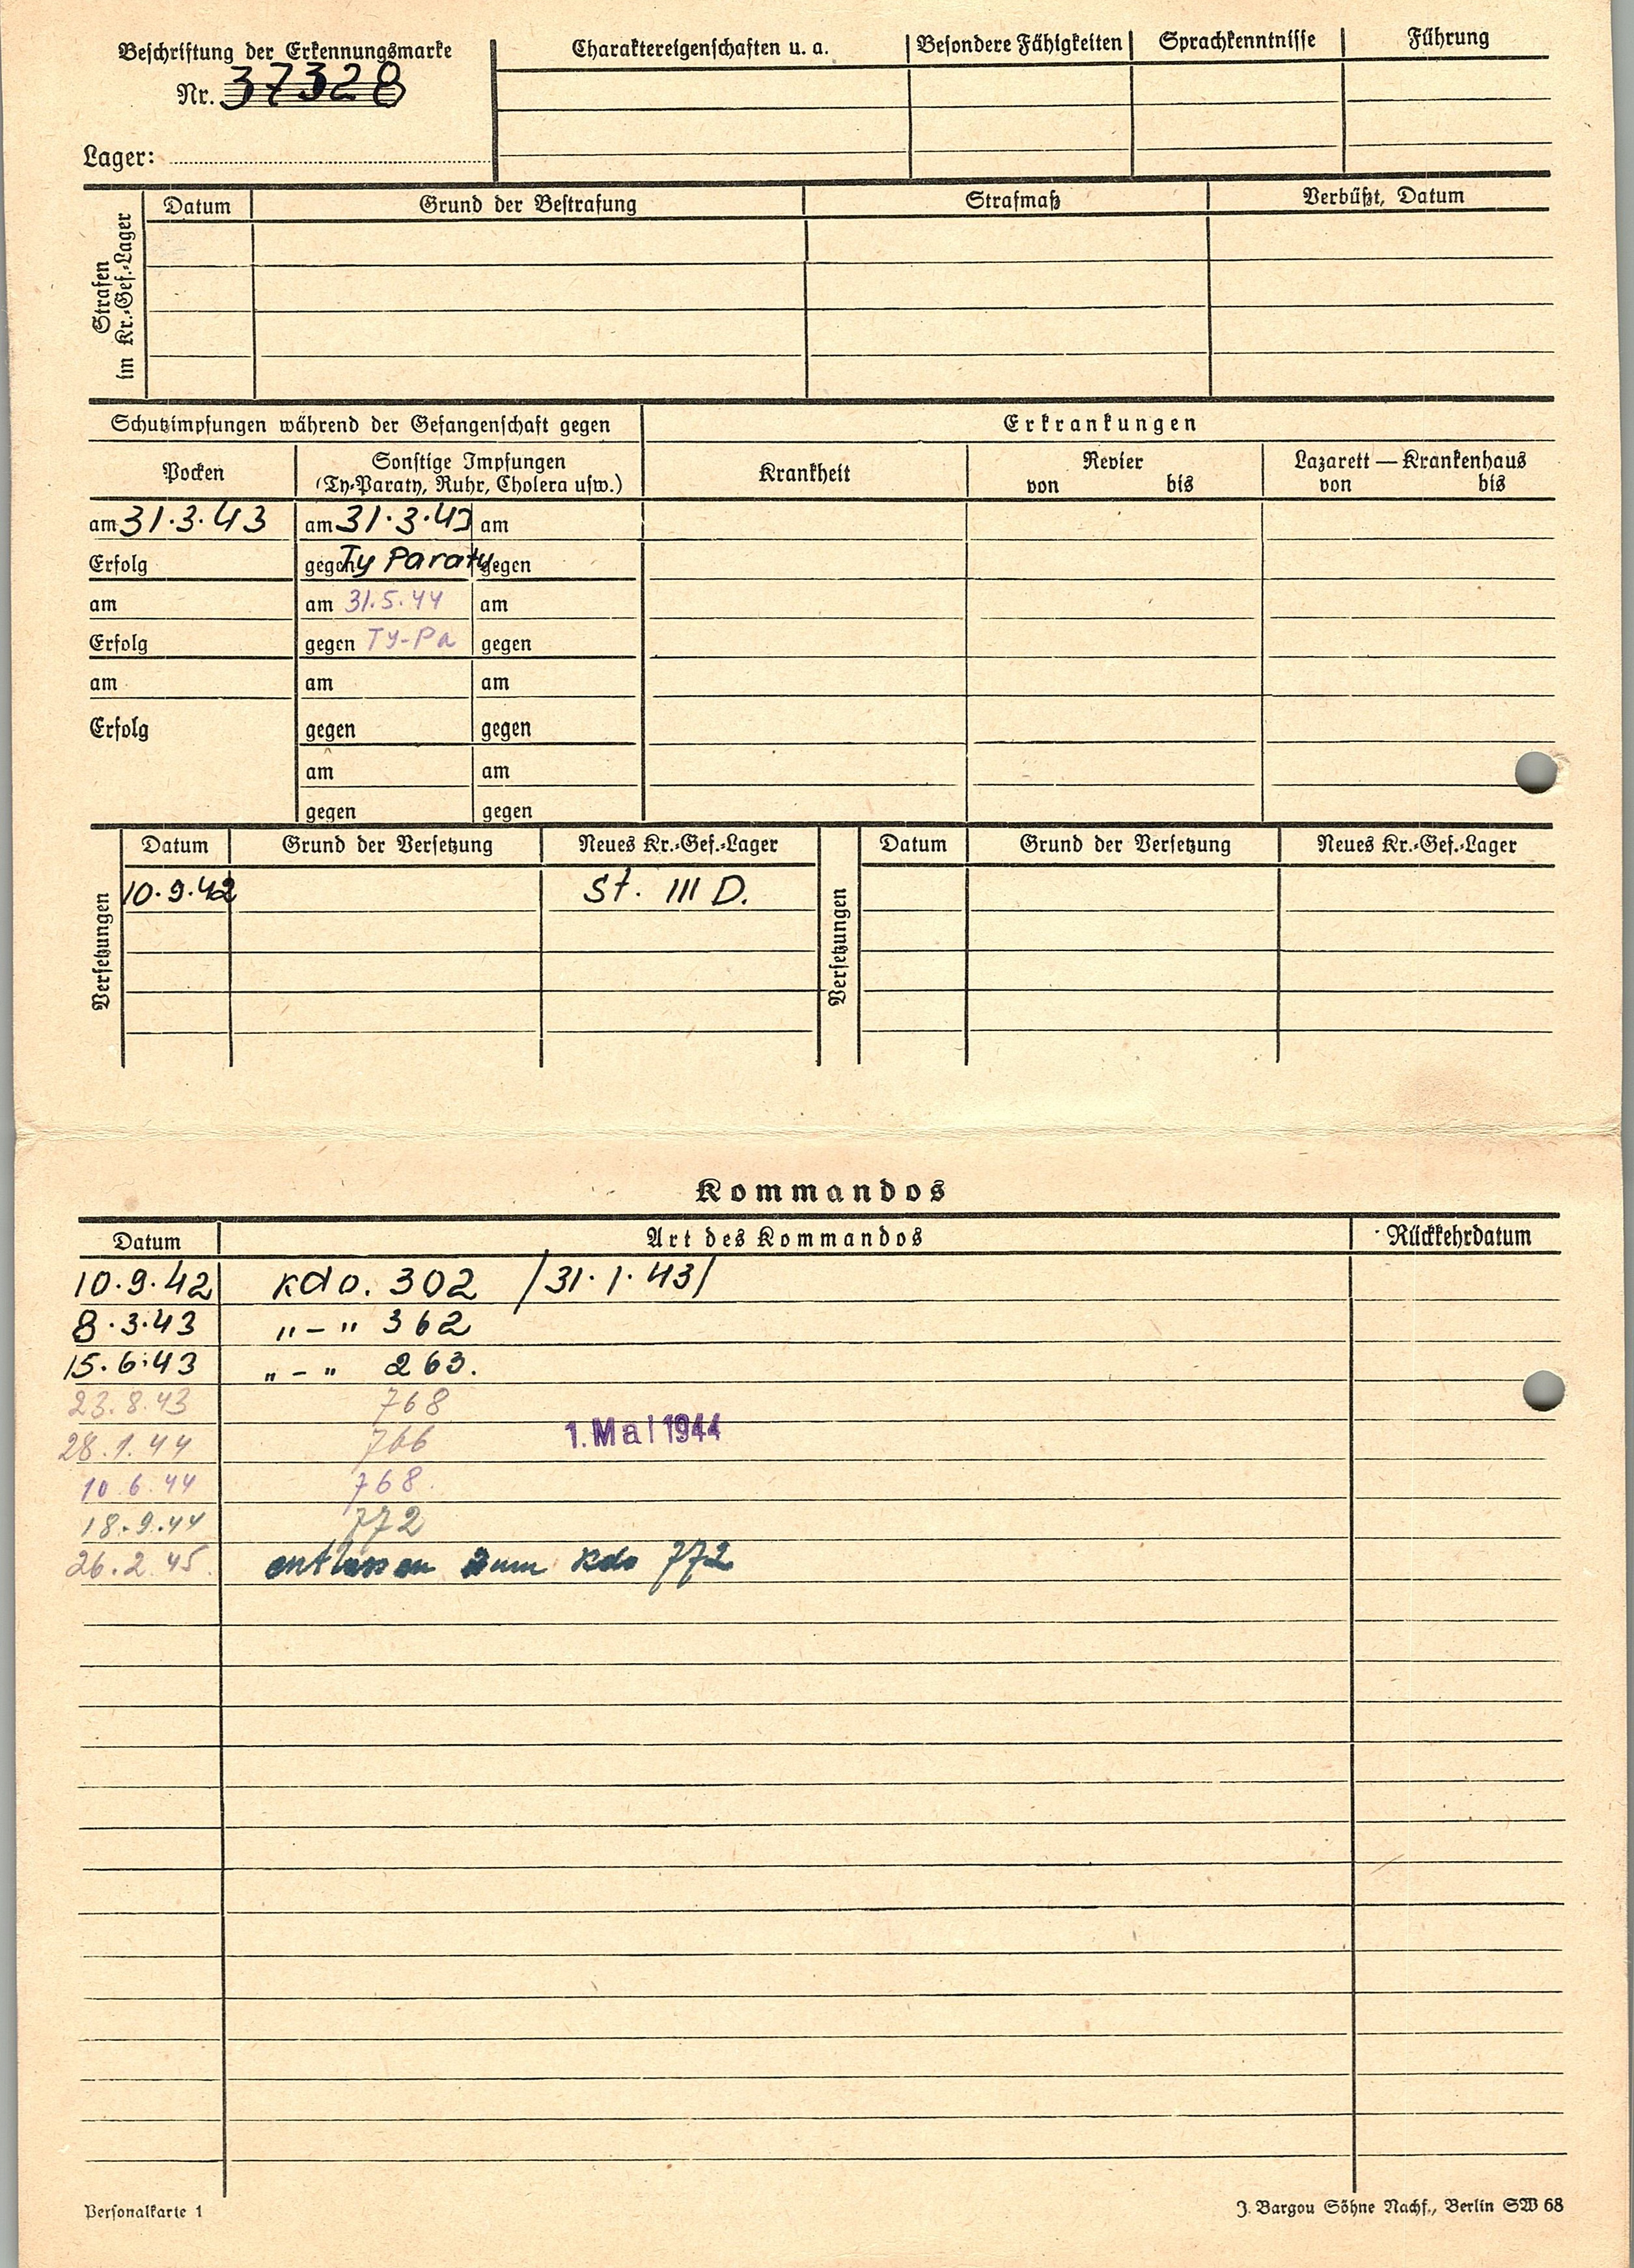 Beschriftung der Erkennungsmarke
Nr. 37328
Lager:
Charaktereigenschaften u. a. Besondere Fähigkeiten Sprachkenntnisse Führung
Strafen im Kr.-Gef.-Lager
Datum Grund der Bestrafung Strafmaß Verbüßt, Datum
Schutzimpfungen während der Gefangenschaft gegen
Erkrankungen
Pocken
Sonstige Impfungen
(Ty-Paraty, Ruhr, Cholera usw.)
Krankheit
Revier
von bis
Lazarett — Krankenhaus
von bis
am 31.3.43 am 31.3.43 am
Erfolg gegen Ty Paraty gegen
am am 31.5.44 am
Erfolg gegen Ty-Pa gegen
am am am
Erfolg gegen gegen
am am
gegen gegen
Versetzungen
Datum Grund der Versetzung Neues Kr.-Gef.-Lager
10.9.42 St. III D.
Versetzungen
Datum Grund der Versetzung Neues Kr.-Gef.-Lager
Kommandos
Datum Art des Kommandos Rückkehrdatum
10.9.42 Kdo. 302 /31.1.43/
8.3.43 "-" 362
15.6.43 "-" 263.
23.8.43 768
28.1.44 766 1. Mai 1944
10.6.44 768.
18.9.44 772
26.2.45. entlassen zum Kdo 772
Personalkarte 1
J. Bargou Söhne Nachf., Berlin SW 68